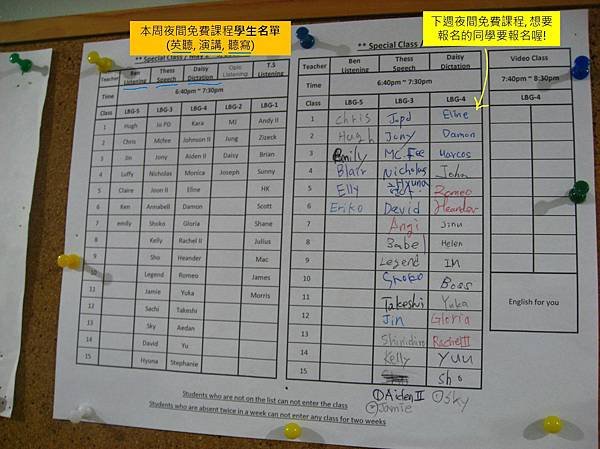 本周夜間免費課程學生名單
(英聽, 演講, 聽寫)
下週夜間免費課程, 想要
報名的同學要報名喔!
** Special Class /
Teacher Ben Listening Thess Speech Daisy Dictation Opic Listening T.S Listening
Time 6:40pm ~ 7:30pm
Class LBG-5 LBG-3 LBG-4 LBG-2 LBG-1
1 Hugh Jo PD Kara MJ Andy II
2 Chris Mcfee Johnson II Jung Zizeck
3 Jin Jony Aiden II Daisy Brian
4 Luffy Nicholas Monica Joseph Sunny
5 Claire Joon II Eline HK
6 Ken Annabell Damon Scott
7 emily Shoko Gloria Shane
8 Kelly Rachel II Julius
9 Sho Heander Mac
10 Legend Romeo James
11 Jamie Yuka Morris
12 Sachi Takeshi
13 Sky Aedan
14 David Yu
15 Hyuna Stephanie
** Special Class /
Teacher Ben Listening Thess Speech Daisy Dictation
Time 6:40pm ~ 7:30pm
Class LBG-5 LBG-3 LBG-4
1 Chris Jopd Eline
2 Hugh Jony Damon
3 Emily Mc.Fee Marcos
4 Blair Nicholas John
5 Elly Hyuna Romeo
6 Eriko David Heander
7 Angi Jinu
8 Babel Helen
9 Legend IM
10 Shoko Boss
11 Takeshi Yuka
12 Jin Gloria
13 Rachel II
14 Kelly Yuu
15 Sho
①Aiden II ②Sky
②Jamie
Video Class
7:40pm ~ 8:30pm
LBG-4
English for you
Students who are not on the list can not enter the class
Students who are absent twice in a week can not enter any class for two weeks